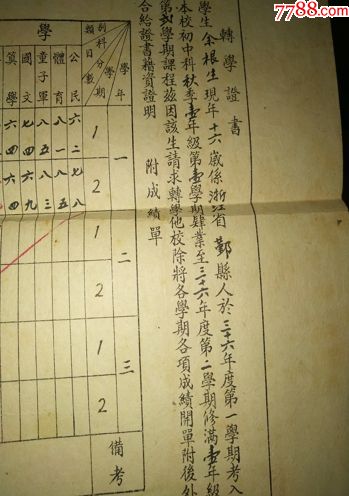 7788.com
轉學證書
學生余根生現年十六歲係浙江省鄞縣人於三十六年度第一學期考入
本校初中科秋季壹年級第壹學期肄業至三十六年度第二學期修滿壹年級
第貳學期課程茲因該生請求轉學他校除將各學期各項成績開單附後外
合給證書藉資證明
附成績單
學年 一 二 三 備考
學期 1 2 1 2 1 2
分數
科
類目
學
公民 六二 七八
體育 八一 八五
童子軍 八五 八三
國文 七四 六九
算學 六四 六四